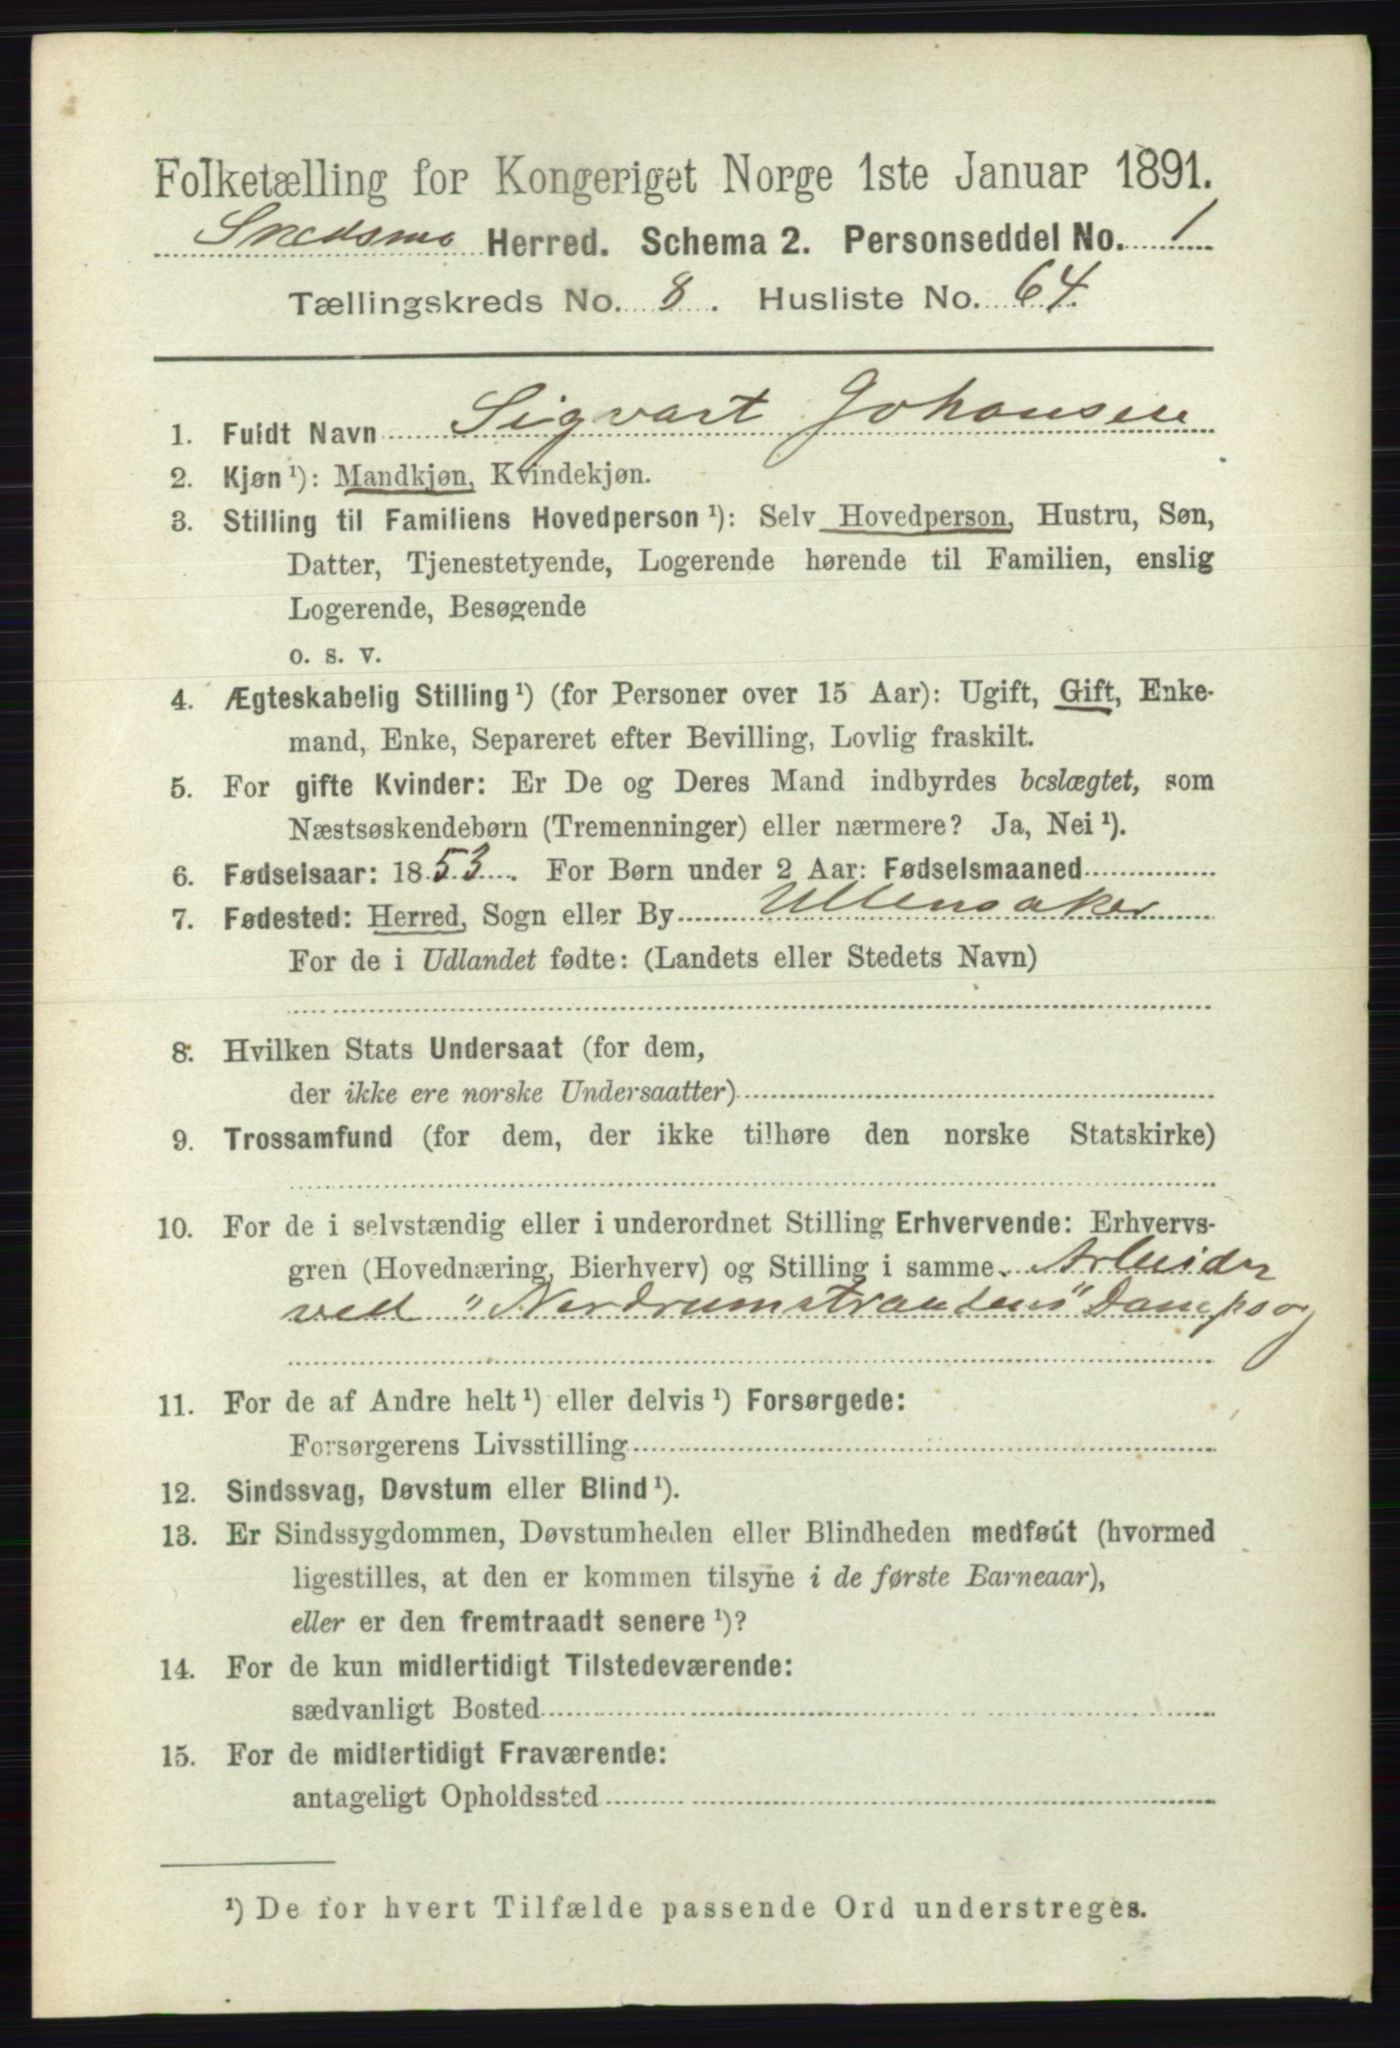 Folketælling for Kongeriget Norge 1ste Januar 1891.
Skedsmo Herred. Schema 2. Personseddel No. 1
Tællingskreds No. 8. Husliste No. 64.
1. Fuldt Navn Sigvart Johansen
2. Kjøn ¹): Mandkjøn, Kvindekjøn.
3. Stilling til Familiens Hovedperson ¹): Selv Hovedperson, Hustru, Søn,
Datter, Tjenestetyende, Logerende hørende til Familien, enslig
Logerende, Besøgende
o. s. v.
4. Ægteskabelig Stilling ¹) (for Personer over 15 Aar): Ugift, Gift, Enke-
mand, Enke, Separeret efter Bevilling, Lovlig fraskilt.
5. For gifte Kvinder: Er De og Deres Mand indbyrdes beslægtet, som
Næstsøskendebørn (Tremenninger) eller nærmere? Ja, Nei ¹).
6. Fødselsaar: 1853. For Børn under 2 Aar: Fødselsmaaned
7. Fødested: Herred, Sogn eller By Ullensaker
For de i Udlandet fødte: (Landets eller Stedets Navn)
8. Hvilken Stats Undersaat (for dem,
der ikke ere norske Undersaatter)
9. Trossamfund (for dem, der ikke tilhøre den norske Statskirke)
10. For de i selvstændig eller i underordnet Stilling Erhvervende: Erhvervs-
gren (Hovednæring, Bierhverv) og Stilling i samme. Arbeider
ved "Nordrumstrandens" Dampsag
11. For de af Andre helt ¹) eller delvis ¹) Forsørgede:
Forsørgerens Livsstilling
12. Sindssvag, Døvstum eller Blind ¹).
13. Er Sindssygdommen, Døvstumheden eller Blindheden medfødt (hvormed
ligestilles, at den er kommen tilsyne i de første Barneaar),
eller er den fremtraadt senere ¹)?
14. For de kun midlertidigt Tilstedeværende:
sædvanligt Bosted
15. For de midlertidigt Fraværende:
antageligt Opholdssted
¹) De for hvert Tilfælde passende Ord understreges.